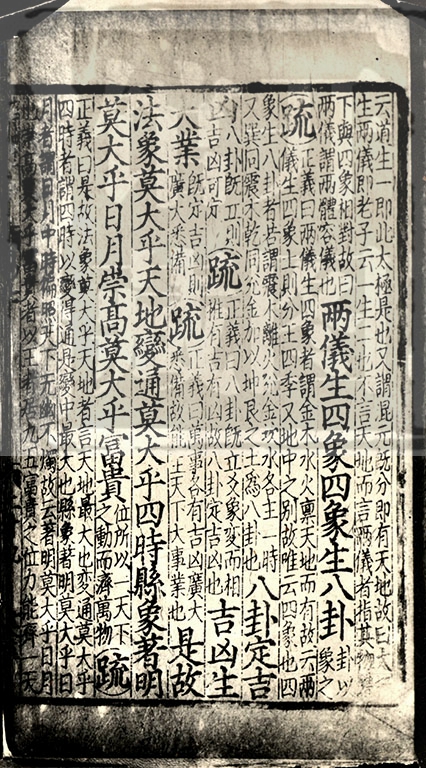 云道生一即此太極是也又謂混元旣分即有天地故曰太
生兩儀即老子云一生二也不言天地而言兩儀者指其物
下與四象相對故曰兩儀謂兩體容儀也兩儀生四象四象生八卦卦以象之
疏正義曰兩儀生四象者謂金木水火稟天地而有故云兩儀生四象土則分王四季又地中之別故唯云四象也四
象生八卦者若謂震木離火兌金坎水各主一時又巽同震木乾同兌金加以坤艮之土爲八卦也八卦定吉
凶八卦旣立則吉凶可定疏正義曰八卦旣立爻象變而相推有吉有凶故八卦定吉凶也吉凶生
大業旣定吉凶則廣大悉備疏正義曰萬事各有吉凶廣大悉備故能王天下大事業也是故
法象莫大乎天地變通莫大乎四時縣象著明
莫大乎日月崇高莫大乎富貴位所以一天下之動而濟萬物疏
正義曰是故法象莫大乎天地者言天地最大也変通莫大乎
四時者謂四時以變得通是變中最大也縣象著明莫大乎日
月者謂日月中時徧照天下无幽不燭故云著明莫大乎日月
也崇高莫大乎富貴者以王者居九五富貴之位力能齊一天